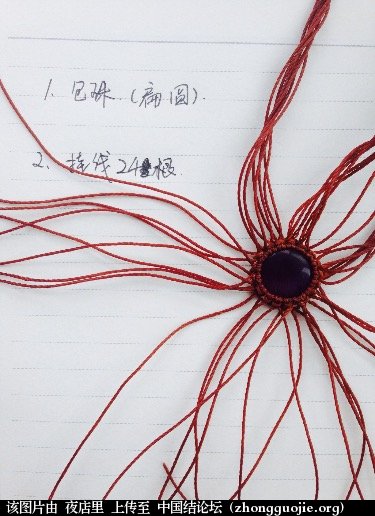 1. 包珠.(扁圆).
2. 挂线24根
该图片由 夜店里 上传至 中国结论坛 (zhongguojie.org)